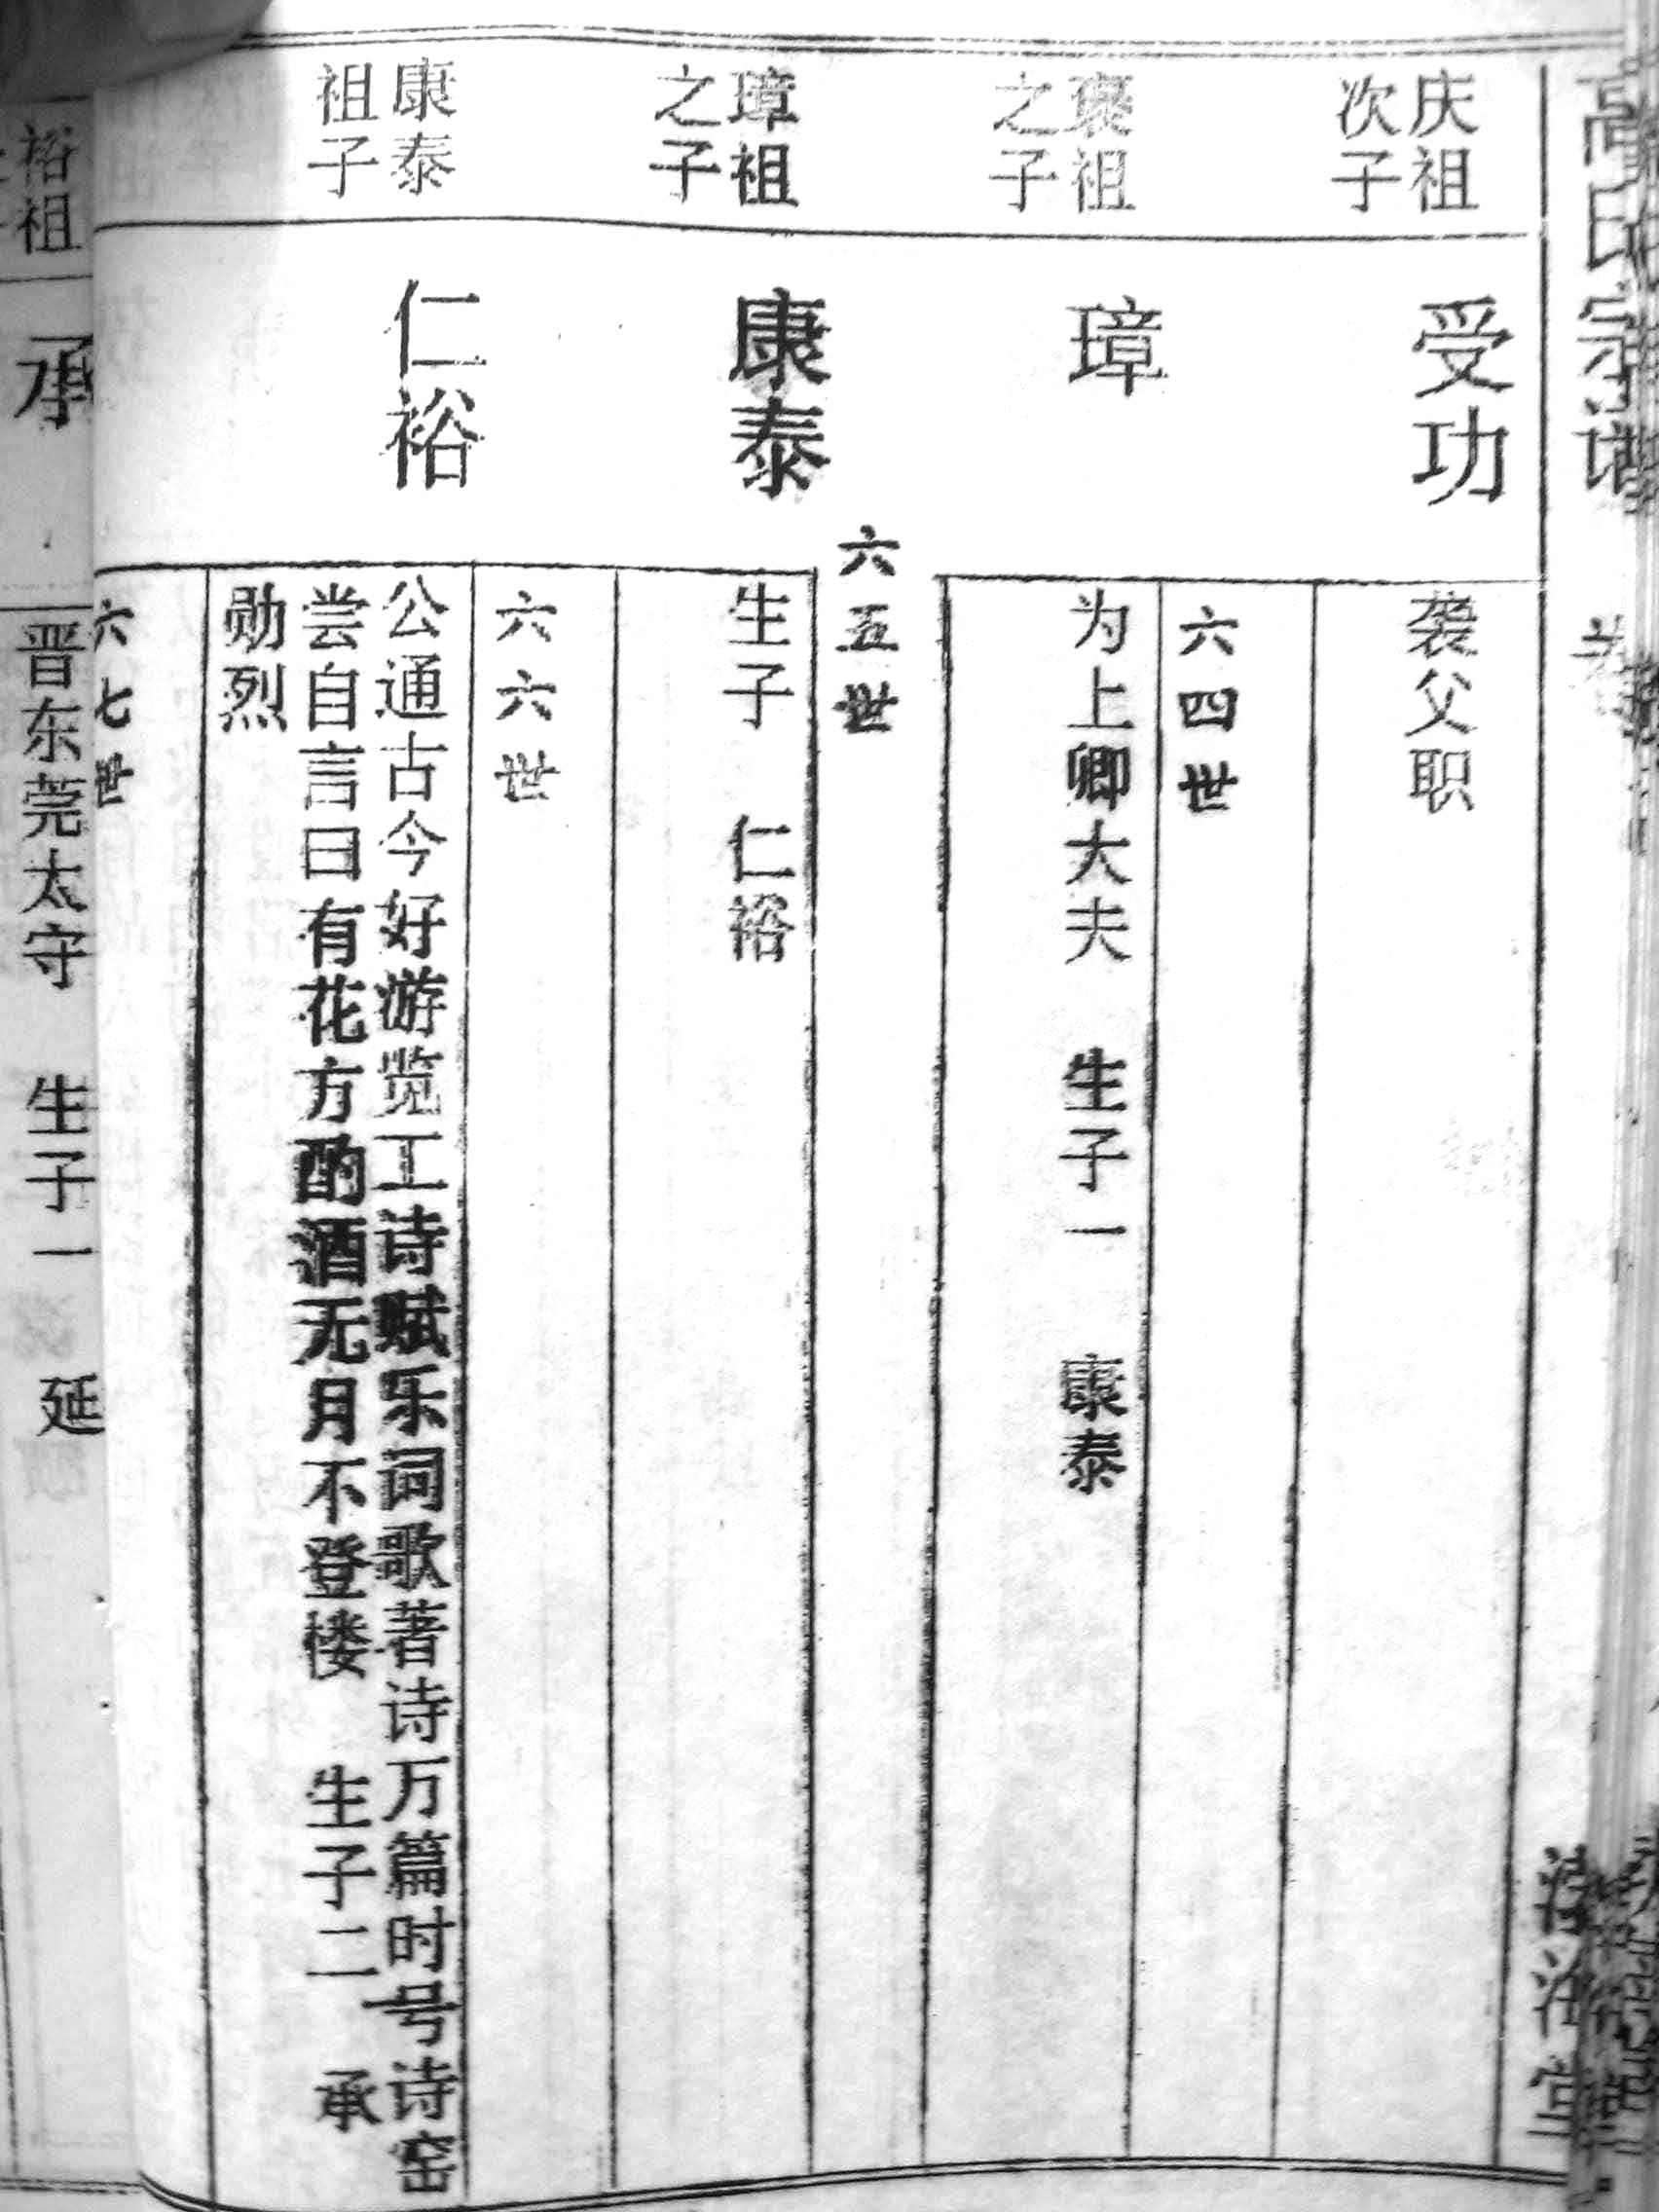 高氏宗谱
庆祖
次子
受功
袭父职
六四世
褒祖
之子
璋
为上卿大夫 生子一 康泰
六五世
璋祖
之子
康泰
生子 仁裕
六六世
康泰
祖子
仁裕
公通古今好游览工诗赋乐词歌著诗万篇时号诗窑
尝自言曰有花方酌酒无月不登楼 生子二 承
勋烈
六七世
裕祖
承
晋东莞太守 生子一 延